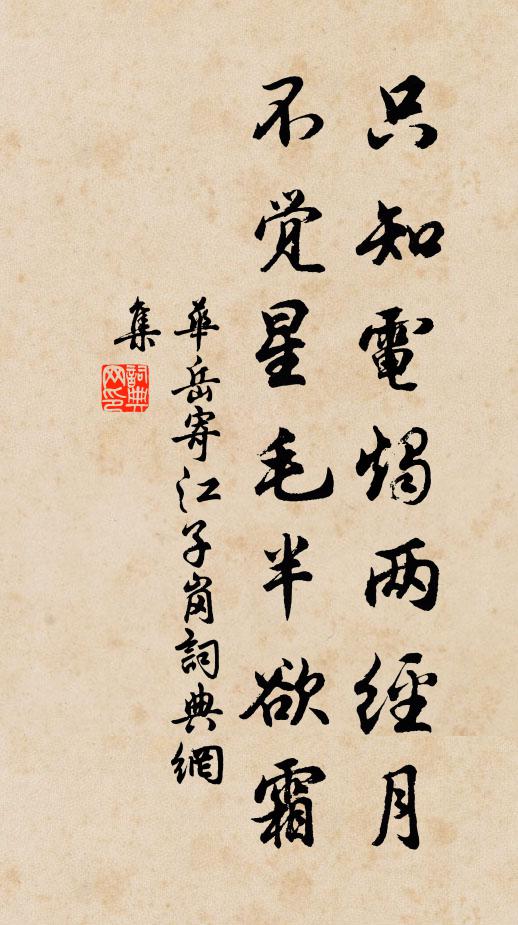 只知電燭两經月
不觉星毛半欲霜
華岳寄江子崗詞典網
集
詞典
网印